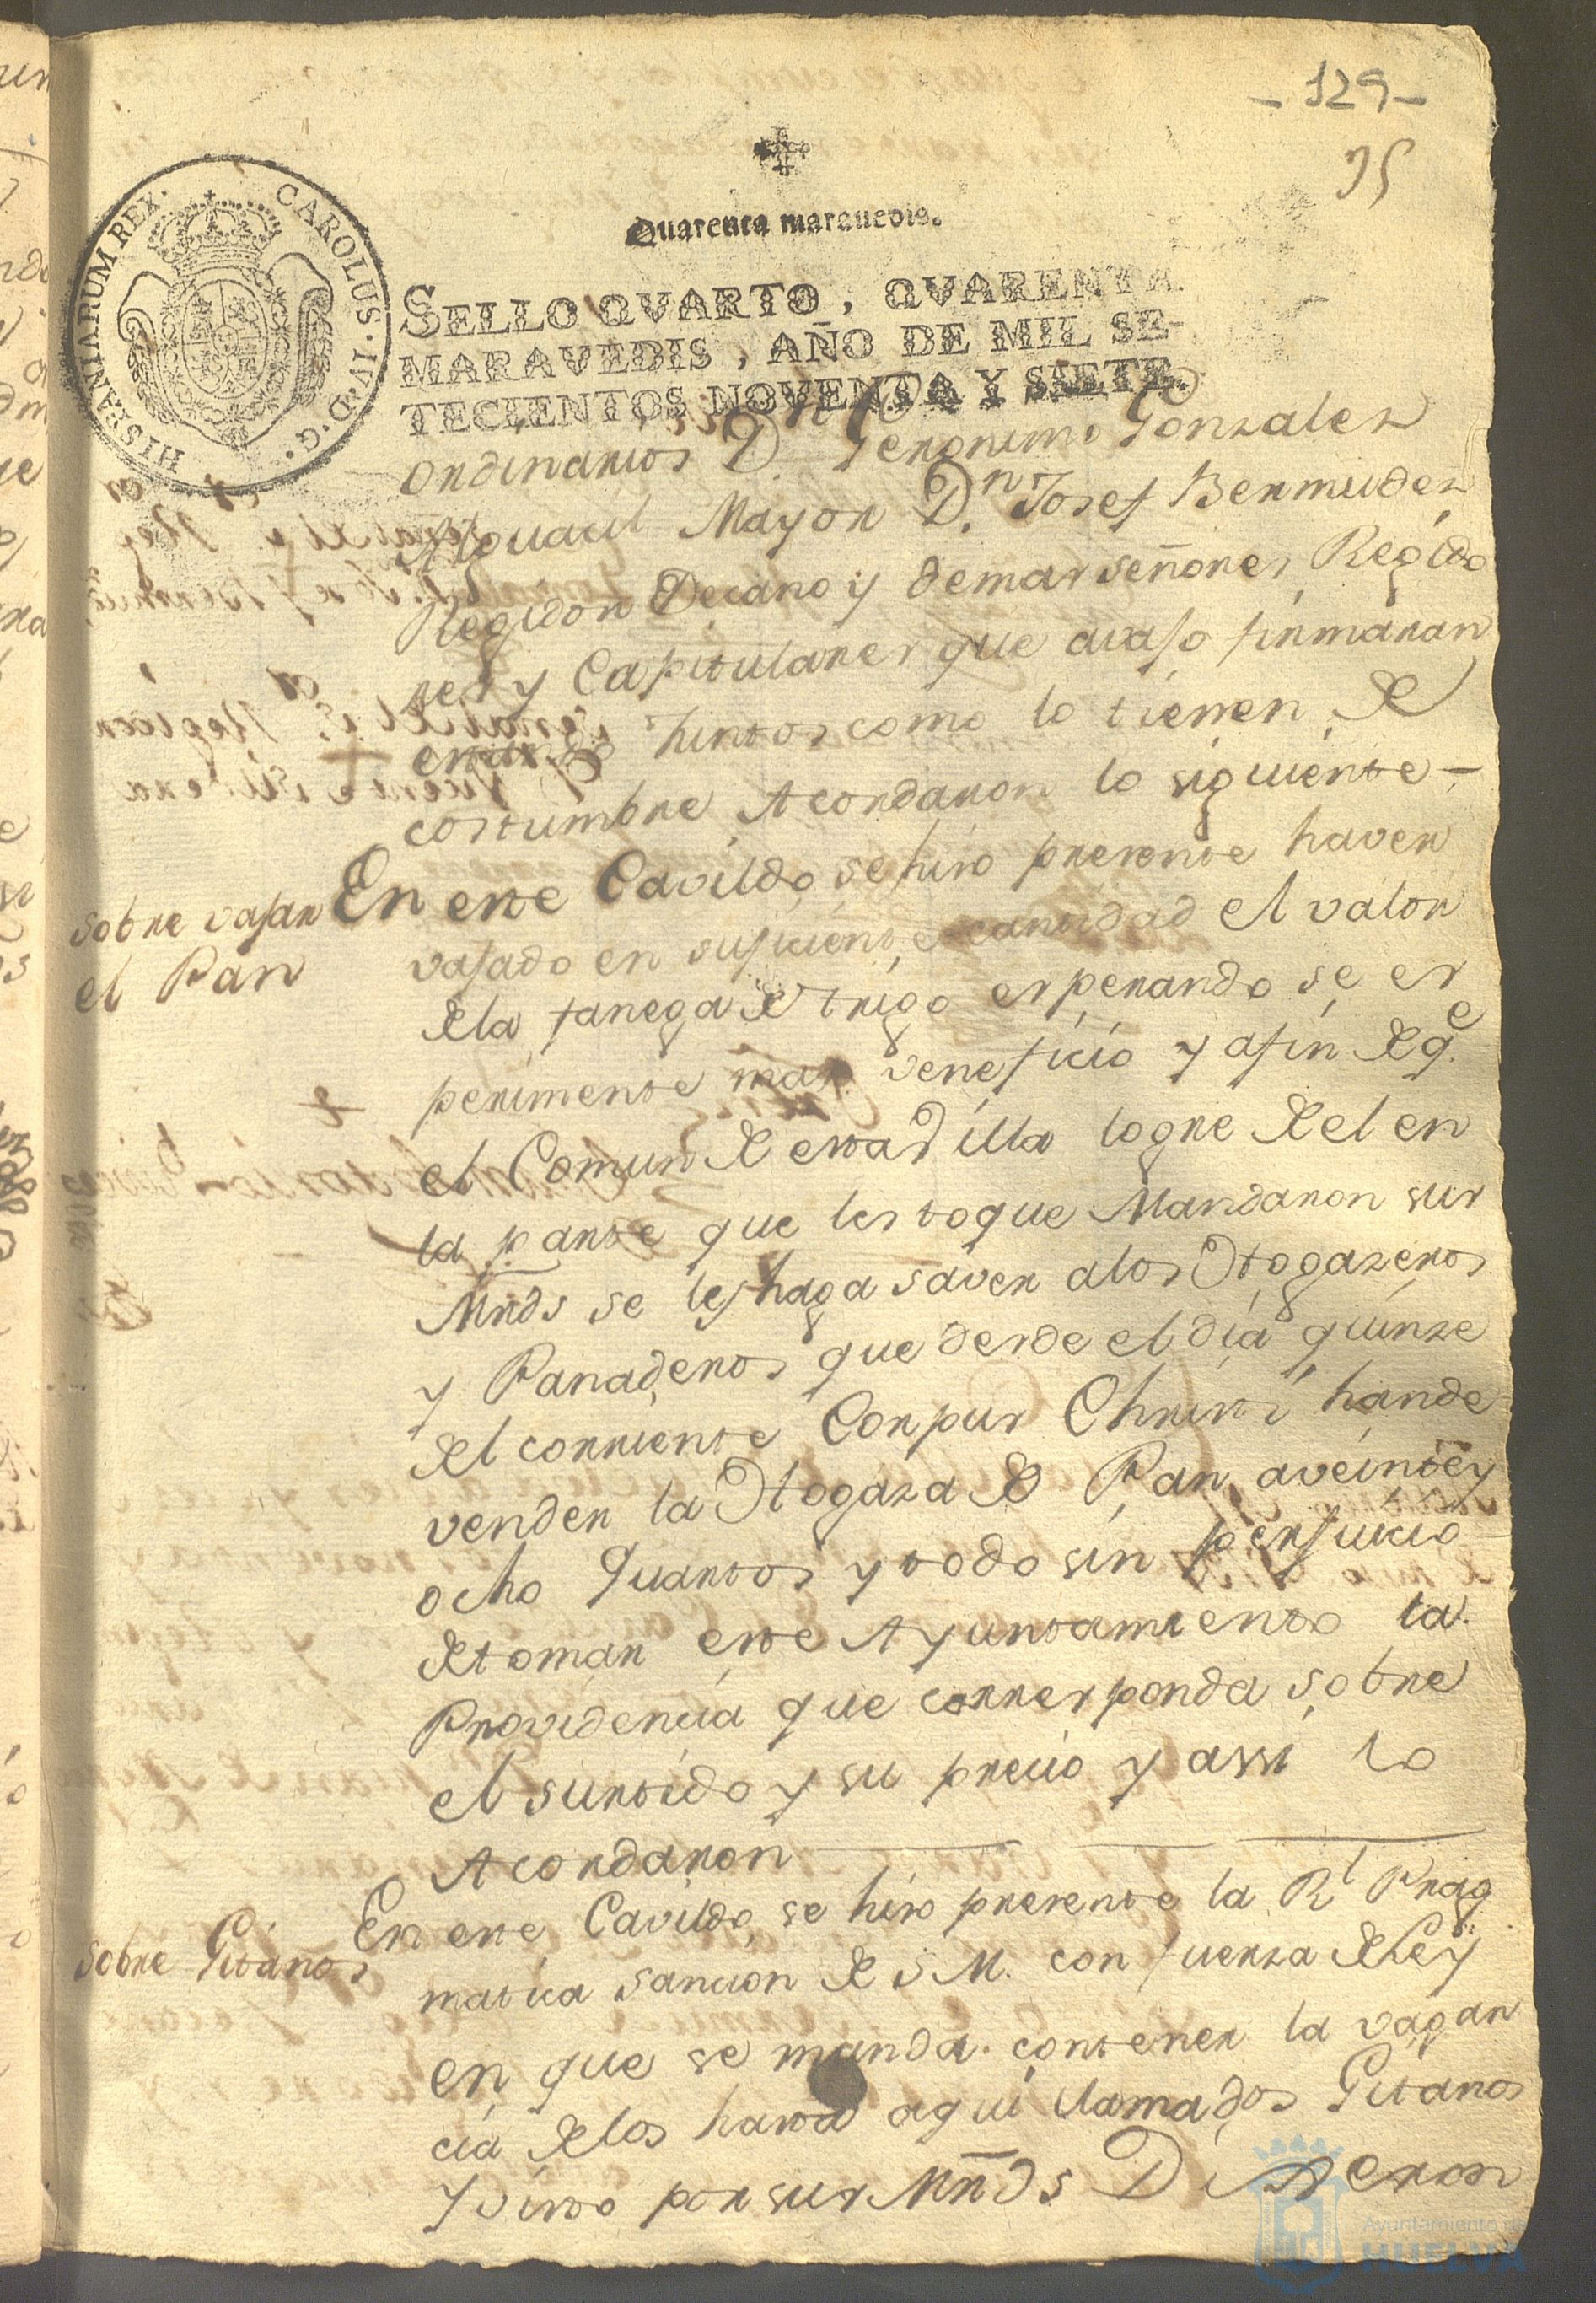 - 129 -
95
Quarenta maravedis.
CAROLUS·IV·D·G· HISPANIARUM REX·
SELLO QVARTO, QVARENTA
MARAVEDIS, AÑO DE MIL SE-
TECIENTOS NOVENTA Y SIETE.
ordinarios Dn Geronimo Gonzalez
Alguacil Mayor Dn. Josef Bermudez
Regidor Decano y demas señores Regido
res y Capitulares que avajo firmaran
estando juntos como lo tienen de
costumbre Acordaron lo siguiente -
sobre vajar
el Pan
En este Cavildo se hizo presente haver
vajado en suficiente cantidad el valor
de la fanega de trigo esperando se es
perimente mas veneficio y afin de qe.
el Comun de esta Villa logre de el en
la parte que les toque Mandaron sus
Mrds se les haga saver alos Hogazeros
y Panaderos que desde el dia quinze
del corriente Corpus Christi hande
vender la Hogaza de Pan a veinte y
ocho Quartos y todo sin perjuicio
de tomar este Ayuntamiento la
Providencia que corresponda sobre
el surtido y su precio y assi lo
Acordaron
sobre Gitanos
En este Cavildo se hizo presente la Rl Prag
matica sancion de S M. con fuerza de Ley
en que se manda contener la vagan
cia de los hasta aqui llamados Gitanos
y visto por sus Mrds Dixeron
Ayuntamiento de
HUELVA